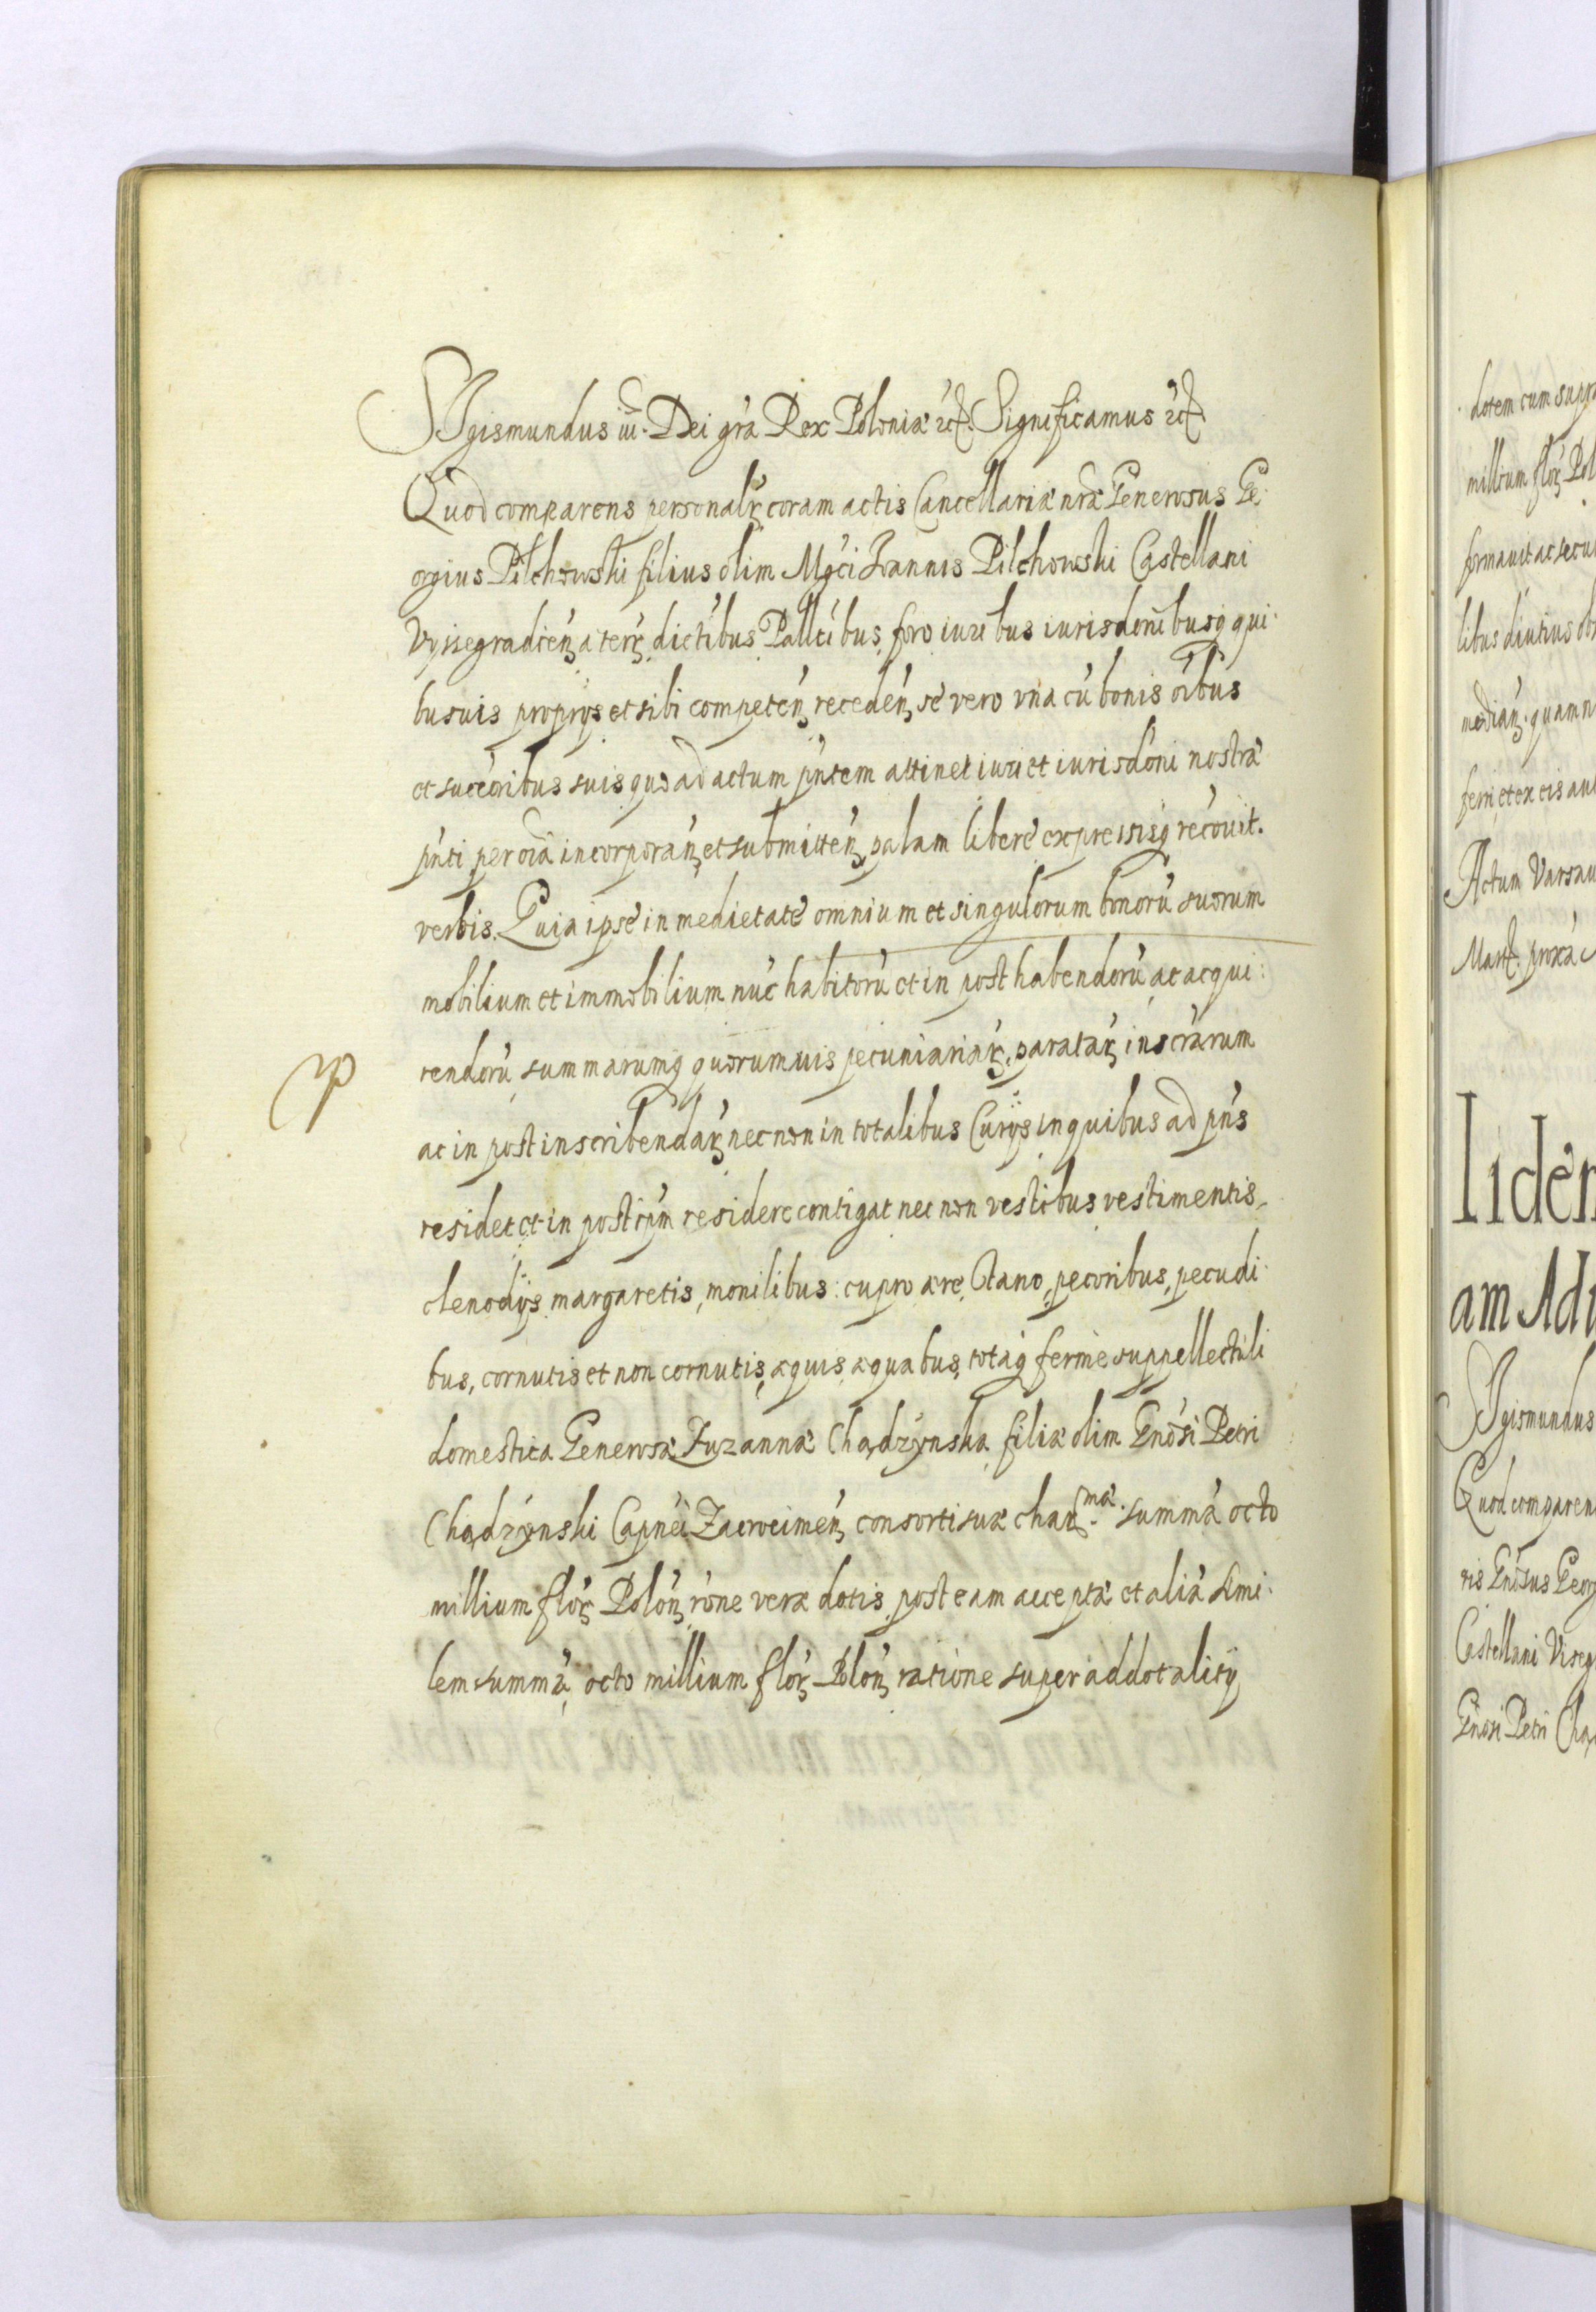 Sigismundus iii. Dei grã Rex Poloniæ etc. Significamus etc.
Quod comparens personalr coram actis Cancellariæ nræ Generosus Ge:
orgius Pilchowski filius olim Mgci Joannis Pilchowski Castellani
Vyssegradien a terr, dictibus, Pallcibus, foro iuribus iurisdonibusq qui:
busuis proprijs et sibi competen receden, se vero vna cũ bonis oibus
et succoribus suis quo ad actum pntem attinet iuri et iurisdoni nostræ
pnti per oia incorporan et submitten, palam libere expressisq recouit.
verbis. Quia ipse in medietate omnium et singulorum bonorũ suorum
mobilium et immobilium nũc habitorũ et in post habendorũ ac acqui:
rendorũ summarumq quorumuis pecuniariar, paratar inscrarum
ac in post inscribendar nec non in totalibus Curijs in quibus ad pns
residet et in postrum residere contigat nec non vestibus vestimentis,
clenodijs margaretis, monilibus: cupro ære, stano, pecoribus, pecudi:
bus, cornutis et non cornutis, æquis æquabus, totaq ferme suppellectili
domestica Generosæ Zuzannæ Chądzynska filiæ olim Gnosi Petri
Chądzynski Capnei Zacrocimen consorti suæ char.mæ summã octo
millium flor Polon rone veræ dotis post eam acceptæ et aliã simi:
lem summã octo millium flor Polon ratione superaddotalitij
dotem cum supra
millium flor Pol
formauit ac
libus diutius
median. quam n
ferri et ex eis
Actum Varsau
Mart. proxa
Iiden
am Adu
Sigismundus
Quod comparen
ris Gnosus Georg
Castellani Viseg
Gnosi Petri Cha